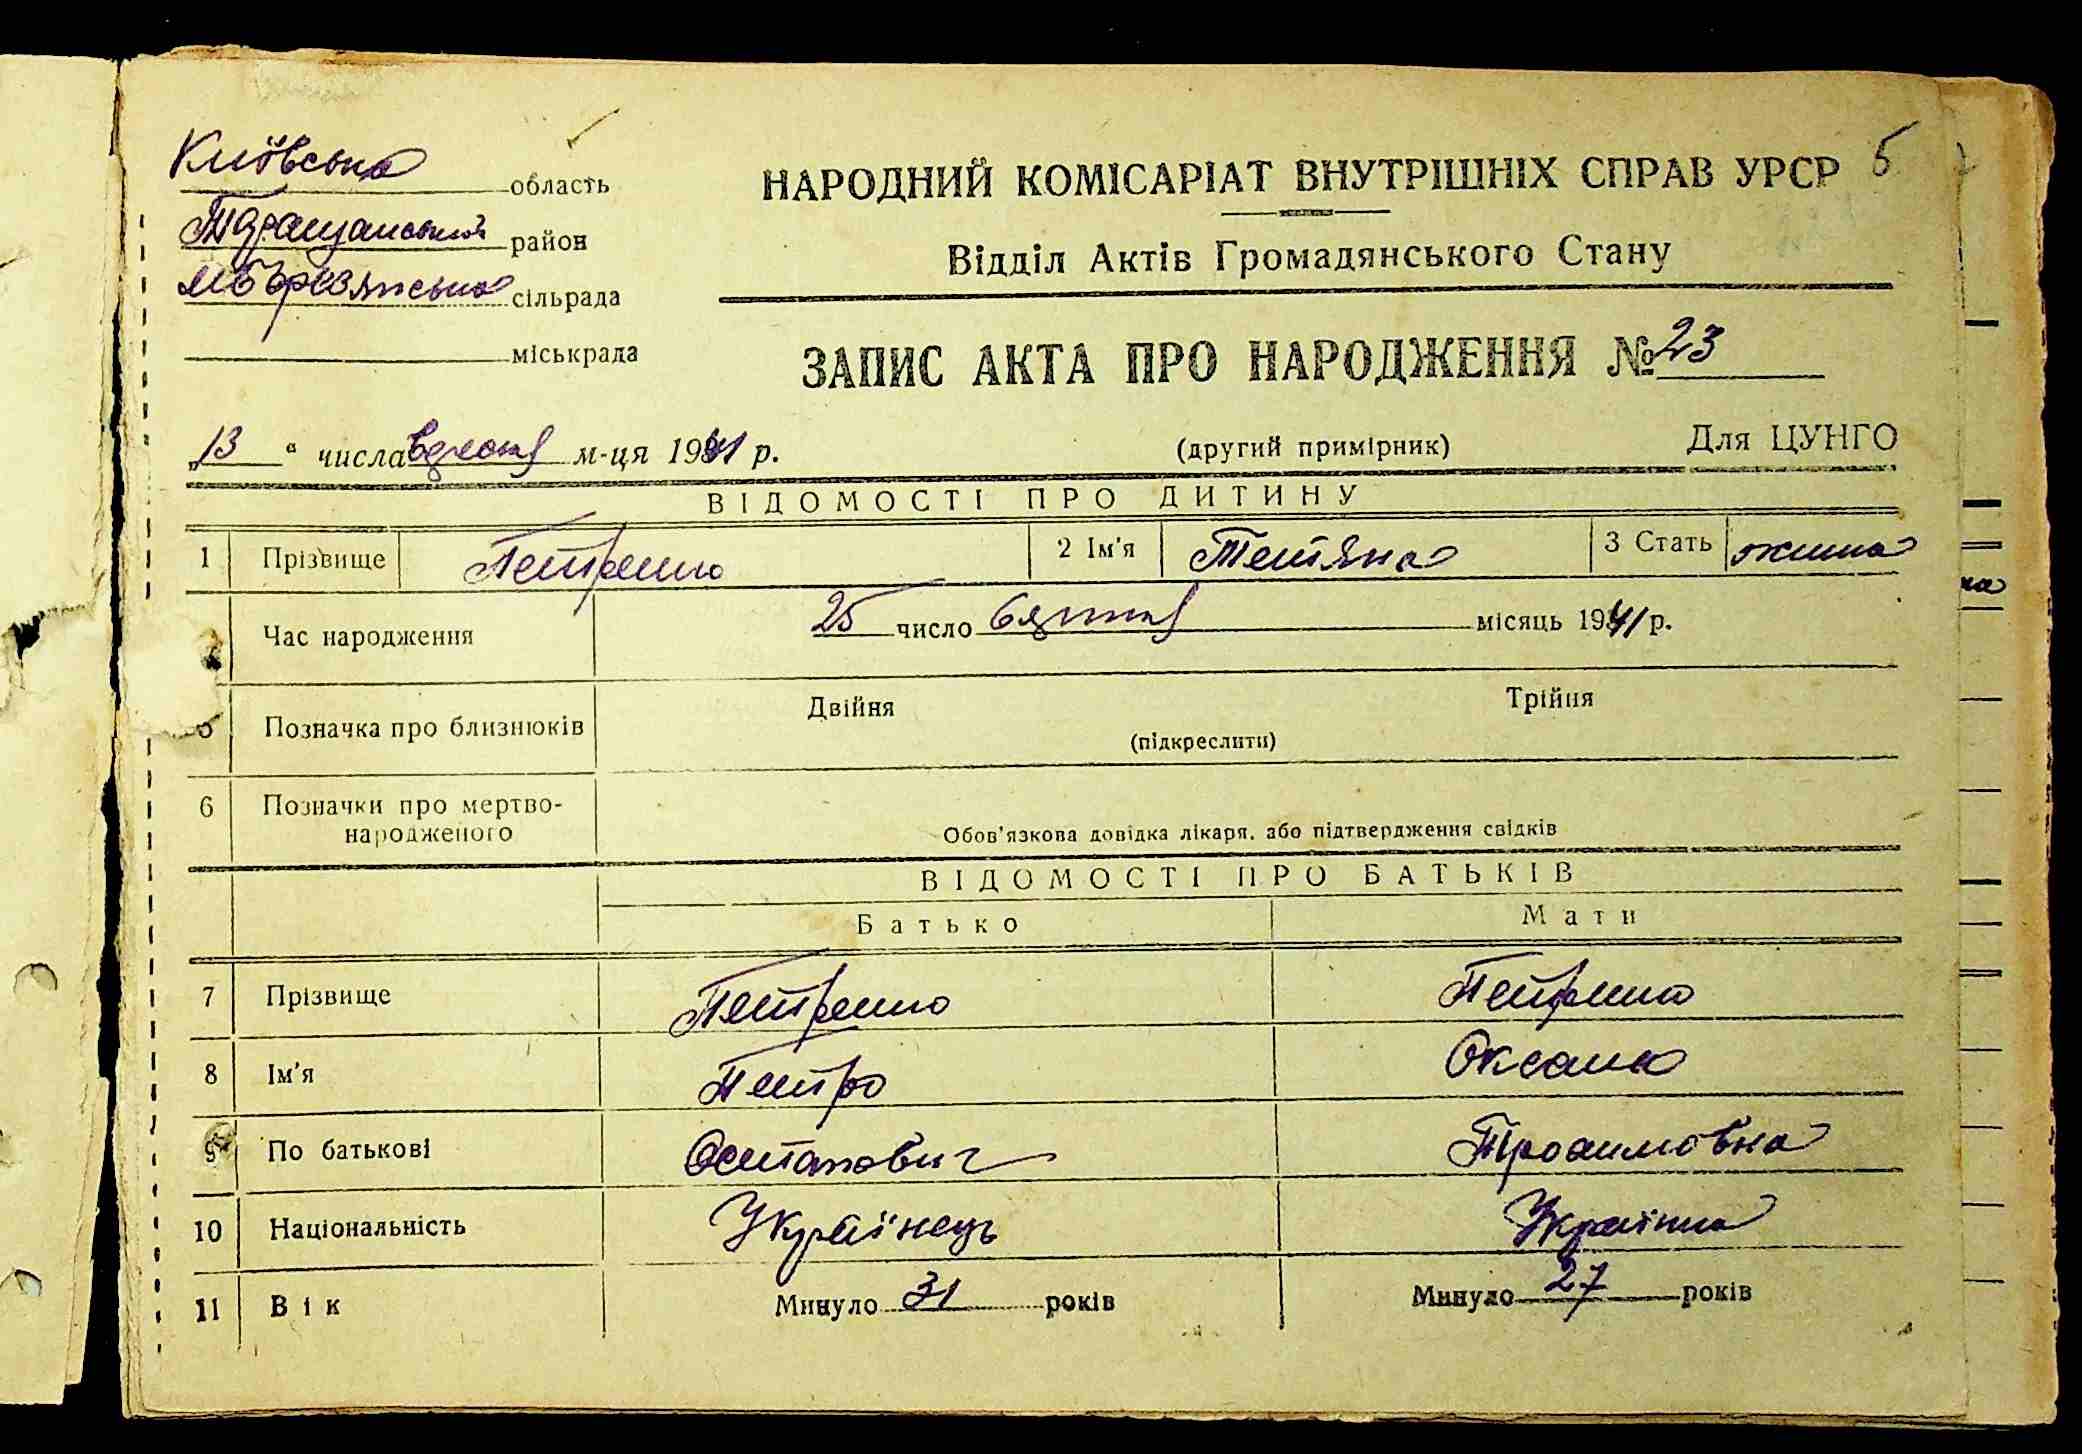 Київська область
Таращанський район
сільрада
міськрада
НАРОДНИЙ КОМІСАРІАТ ВНУТРІШНІХ СПРАВ УРСР 5
Відділ Актів Громадянського Стану
ЗАПИС АКТА ПРО НАРОДЖЕННЯ № 23
„13“ числа м-ця 1941 р.
(другий примірник) Для ЦУНГО
ВІДОМОСТІ ПРО ДИТИНУ
1 Прізвище Петренко 2 Ім'я Тетяна 3 Стать
Час народження 25 число місяць 1941 р.
5 Позначка про близнюків Двійня Трійня
(підкреслити)
6 Позначки про мертво-
народженого Обов'язкова довідка лікаря, або підтвердження свідків
ВІДОМОСТІ ПРО БАТЬКІВ
Батько Мати
7 Прізвище Петренко Петренко
8 Ім'я Петро Оксана
9 По батькові Остапович
10 Національність Українець Українка
11 Вік Минуло 31 років Минуло 27 років